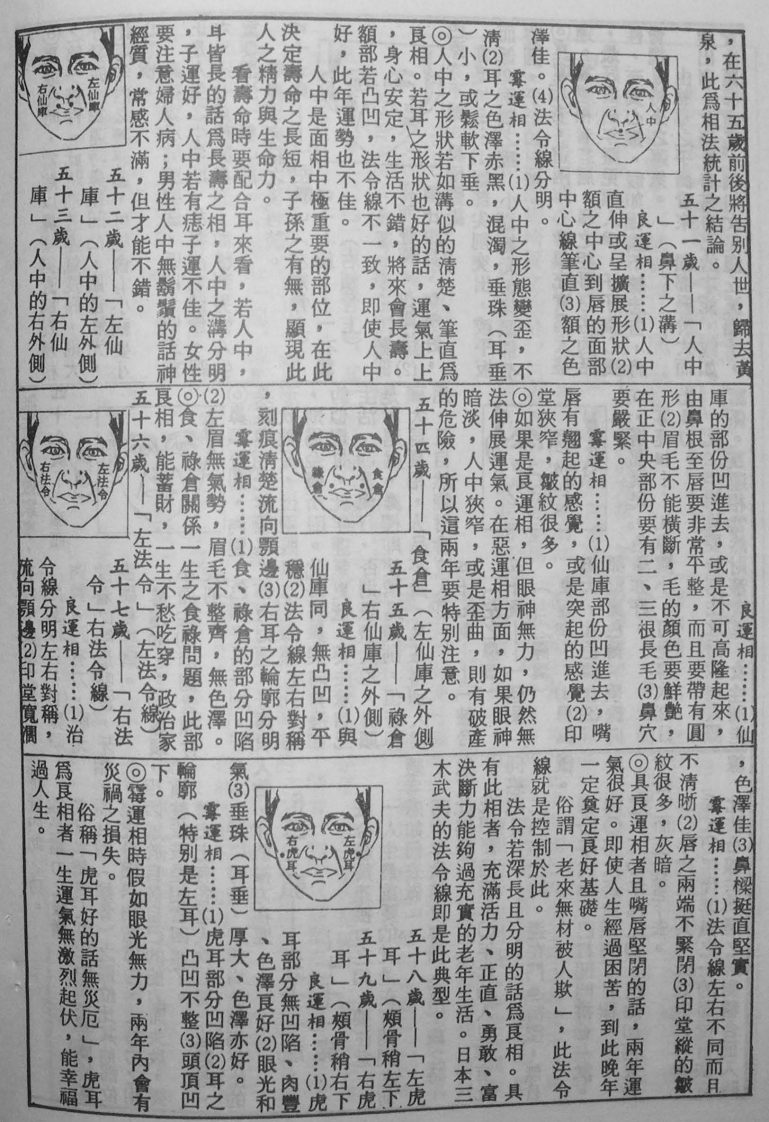 ，在六十五歲前後將告别人世，歸去黃
泉，此爲相法統計之結論。
人中
五十一歲——「人中
」（鼻下之溝）
良運相……⑴人中
直伸或呈擴展形狀⑵
額之中心到唇的面部
中心線筆直⑶額之色
澤佳。⑷法令線分明。
霉運相……⑴人中之形態變歪，不
淸⑵耳之色澤赤黑，混濁，垂珠（耳垂
）小，或鬆軟下垂。
◎人中之形狀若如溝似的淸楚、筆直爲
良相。若耳之形狀也好的話，運氣上上
，身心安定，生活不錯，將來會長壽。
額部若凸凹，法令線不一致，即使人中
好，此年運勢也不佳。
人中是面相中極重要的部位，在此
決定壽命之長短，子孫之有無，顯現此
人之精力與生命力。
看壽命時要配合耳來看，若人中，
耳皆長的話爲長壽之相，人中之溝分明
，子運好，人中若有痣子運不佳。女性
要注意婦人病；男性人中無鬍鬚的話神
經質，常感不滿，但才能不錯。
左仙庫
右仙庫
五十二歲——「左仙
庫」（人中的左外側）
五十三歲——「右仙
庫」（人中的右外側）
良運相……⑴仙
庫的部份凹進去，或是不可高隆起來，
由鼻根至唇要非常平整，而且要帶有圓
形⑵眉毛不能橫斷，毛的顏色要鮮艷，
在正中央部份要有二、三根長毛⑶鼻穴
要嚴緊。
霉運相……⑴仙庫部份凹進去，嘴
唇有翹起的感覺，或是突起的感覺⑵印
堂狹窄，皺紋很多。
◎如果是良運相，但眼神無力，仍然無
法伸展運氣。在惡運相方面，如果眼神
暗淡，人中狹窄，或是歪曲，則有破產
的危險，所以這兩年要特別注意。
食倉
祿倉
五十四歲——「食倉」（左仙庫之外側）
五十五歲——「祿倉
」右仙庫之外側）
良運相……⑴與
仙庫同，無凸凹，平
穩⑵法令線左右對稱
，刻痕淸楚流向顎邊⑶右耳之輪廓分明
霉運相……⑴食、祿倉的部分凹陷
⑵左眉無氣勢，眉毛不整齊，無色澤。
◎食、祿倉關係一生之食祿問題，此部
良相，能蓄財，一生不愁吃穿，政治家
左法令
右法令
五十六歲——「左法令」（左法令線）
五十七歲——「右法
令」右法令線）
良運相……⑴治
令線分明左右對稱，
流向顎邊⑵印堂寬濶
，色澤佳⑶鼻樑挺直堅實。
霉運相……⑴法令線左右不同而且
不淸晰⑵唇之兩端不緊閉⑶印堂縱的皺
紋很多，灰暗。
◎具良運相者且嘴唇堅閉的話，兩年運
氣很好。即使人生經過困苦，到此晚年
一定奠定良好基礎。
俗謂「老來無材被人欺」，此法令
線就是控制於此。
法令若深長且分明的話爲良相。具
有此相者，充滿活力、正直、勇敢、富
決斷力能夠過充實的老年生活。日本三
木武夫的法令線即是此典型。
左虎耳
右虎耳
五十八歲——「左虎
耳」（頰骨稍左下
五十九歲——「右虎
耳」（頰骨稍右下
良運相……⑴虎
耳部分無凹陷、肉豐
、色澤良好⑵眼光和
氣⑶垂珠（耳垂）厚大、色澤亦好。
霉運相……⑴虎耳部分凹陷⑵耳之
輪廓（特别是左耳）凸凹不整⑶頭頂凹
下。
◎霉運相時假如眼光無力，兩年內會有
災禍之損失。
俗稱「虎耳好的話無災厄」，虎耳
爲良相者一生運氣無激烈起伏，能幸福
過人生。